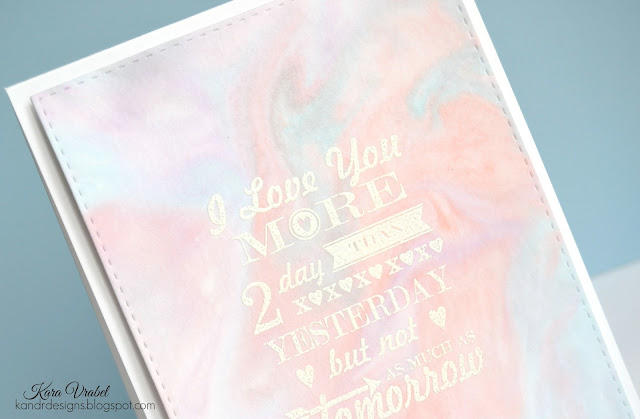 I Love You
MORE
2day THAN
X♥X♥X♥X♥X
YESTERDAY
♥ but not ♥
AS MUCH AS
tomorrow
Kara Vrabel
kanardesigns.blogspot.com